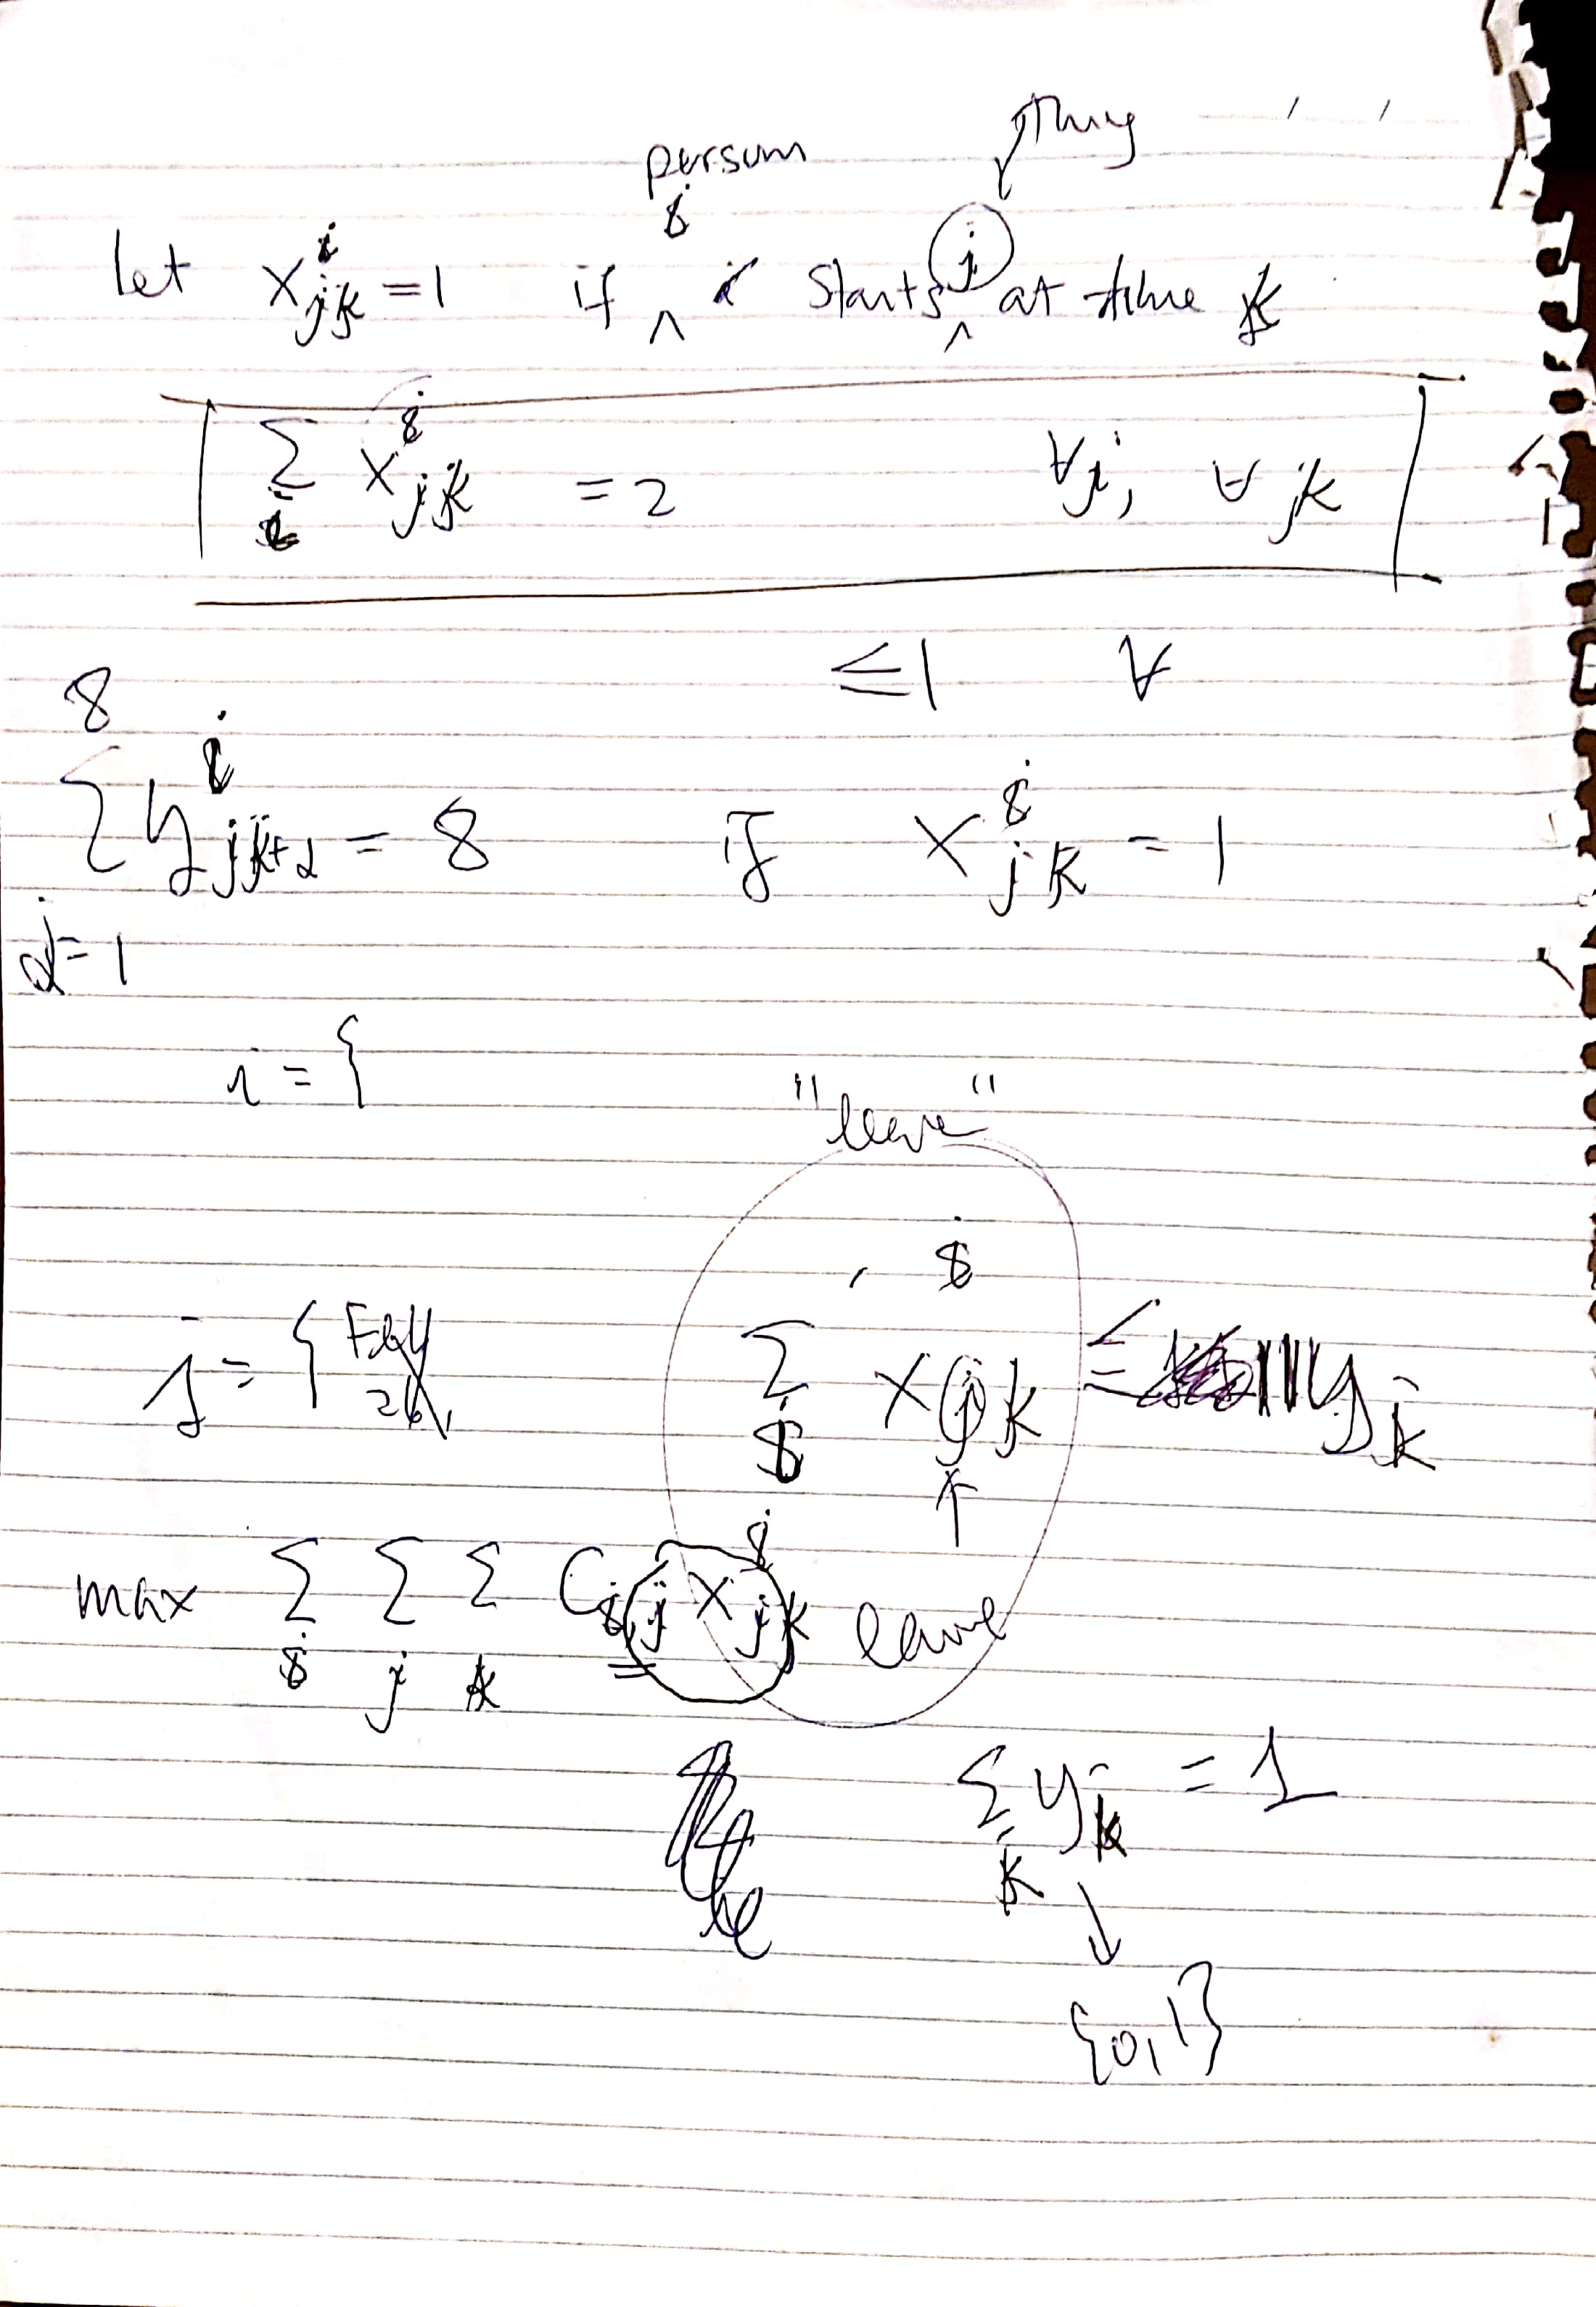 person thing
let x^i_{jk} = 1 if ^ i starts ^ j at time k
Σ_i x^i_{jk} = 2 ∀j, ∀k
≤1 ∀
8
Σ y^i_{jk+d} = 8 if x^i_{jk} = 1
d=1
i = {
"leave"
j = { Σ_i x^i_{jk} ≤ y_k
max Σ_i Σ_j Σ_k C_{i,j} x^i_{jk} leave
Σ_k y_k = 1
{0,1}